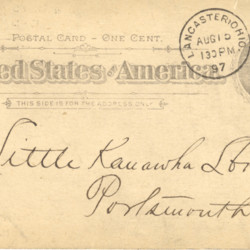 POSTAL CARD - ONE CENT.
LANCASTER OHIO.
AUG 10
130 PM
97
ted States of America
THIS SIDE IS FOR THE ADDRESS ONLY
Little Kanawha
Portsmouth